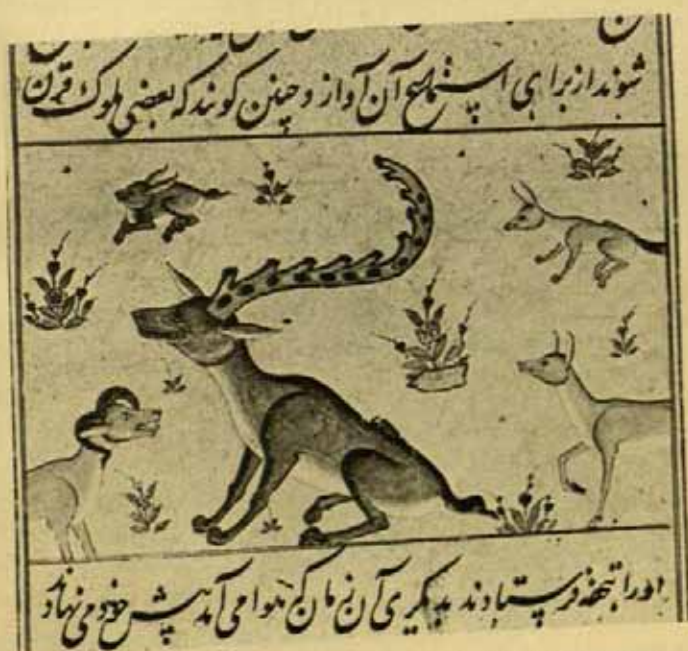 شوند از برای استماع آن آواز و چنین کویند که بعضی ملوک قرن
او را بتحفه فرستادند بدیکری آن زمان که هوا می آمد پیش خود می نهاد